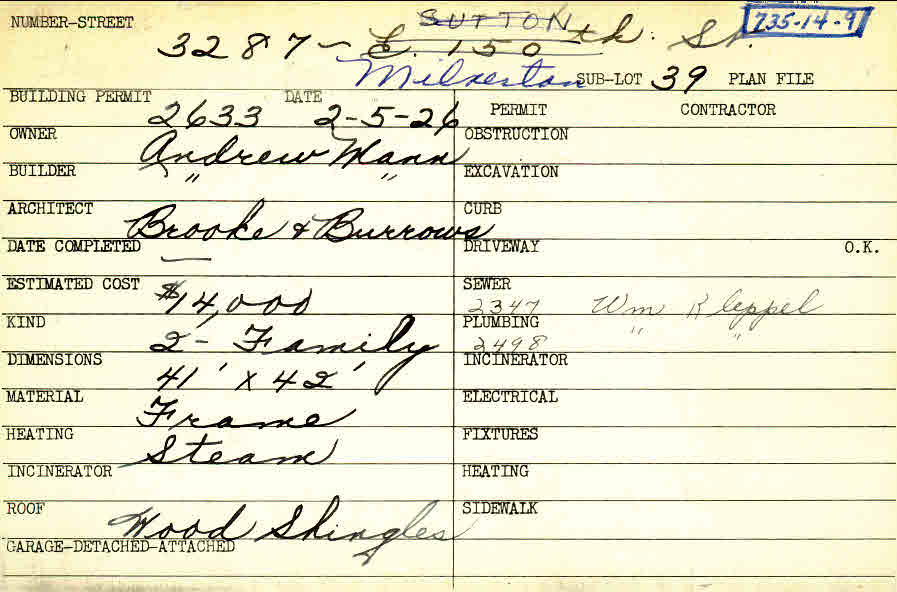 NUMBER-STREET SUTTON 735-14-9
3287- E. 150th. St.
Milverton SUB-LOT 39 PLAN FILE
BUILDING PERMIT 2633 DATE 2-5-26 PERMIT CONTRACTOR
OWNER Andrew Mann OBSTRUCTION
BUILDER " " EXCAVATION
ARCHITECT Brooke & Burrows CURB
DATE COMPLETED — DRIVEWAY O.K.
ESTIMATED COST $14,000 SEWER 2347 Wm Kleppel
KIND 2- Family PLUMBING 2498 " "
DIMENSIONS 41' X 42' INCINERATOR
MATERIAL Frame ELECTRICAL
HEATING Steam FIXTURES
INCINERATOR HEATING
ROOF Wood Shingles SIDEWALK
GARAGE-DETACHED-ATTACHED